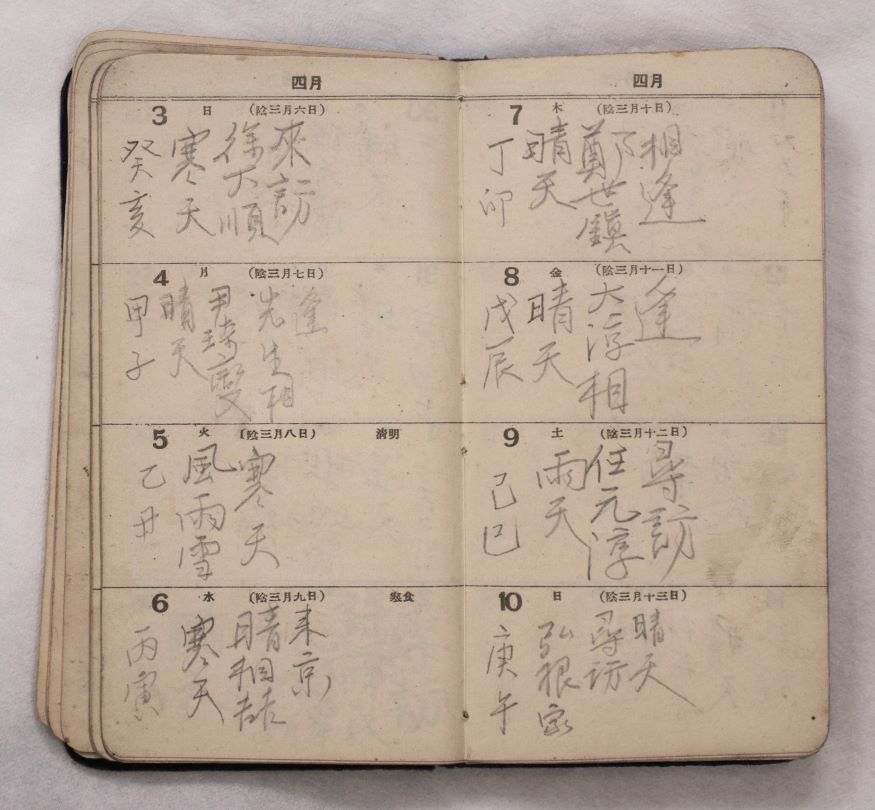 四月
3 日 (陰三月六日)
癸亥
寒天
徐丁順
來訪
4 月 (陰三月七日)
甲子
晴天
尹琦燮
先生相
逢
5 火 (陰三月八日) 淸明
乙丑
風雨雪
寒天
6 水 (陰三月九日) 寒食
丙寅
寒天
晴相喆
東京
四月
7 木 (陰三月十日)
丁卯
晴天
鄭世鎮
相逢
8 金 (陰三月十一日)
戊辰
晴天
大淳相
逢
9 土 (陰三月十二日)
己巳
雨天
任元淳
尋訪
10 日 (陰三月十三日)
庚午
弘根家
尋訪
晴天